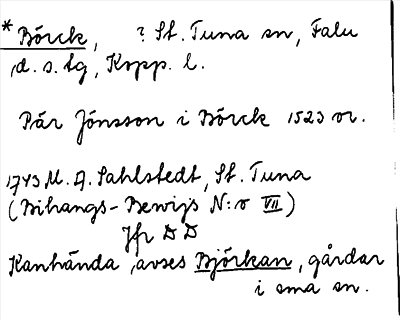 *Börck, ? St. Tuna sn, Falu
d.s. tg, Kopp. l.
Pär Jönsson i Börck 1523 or.
1743 M. A. Sahlstedt, St. Tuna
(Bihangs-Bewijs N:o VII)
Jfr DD
Kanhända, avses Björkan, gårdar
i sma sn.